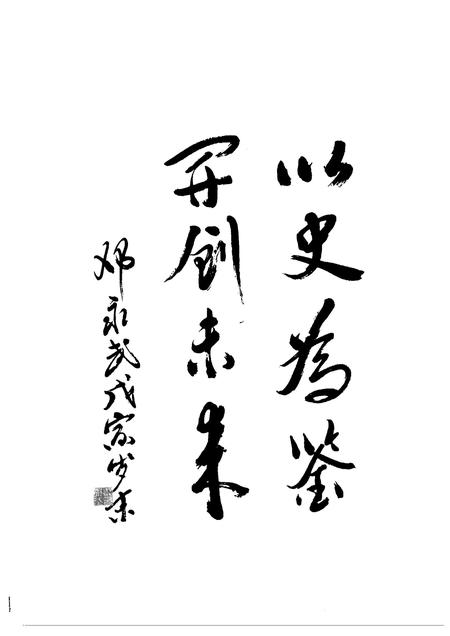 以史為鉴
开创未来
邓永武戊寅岁末